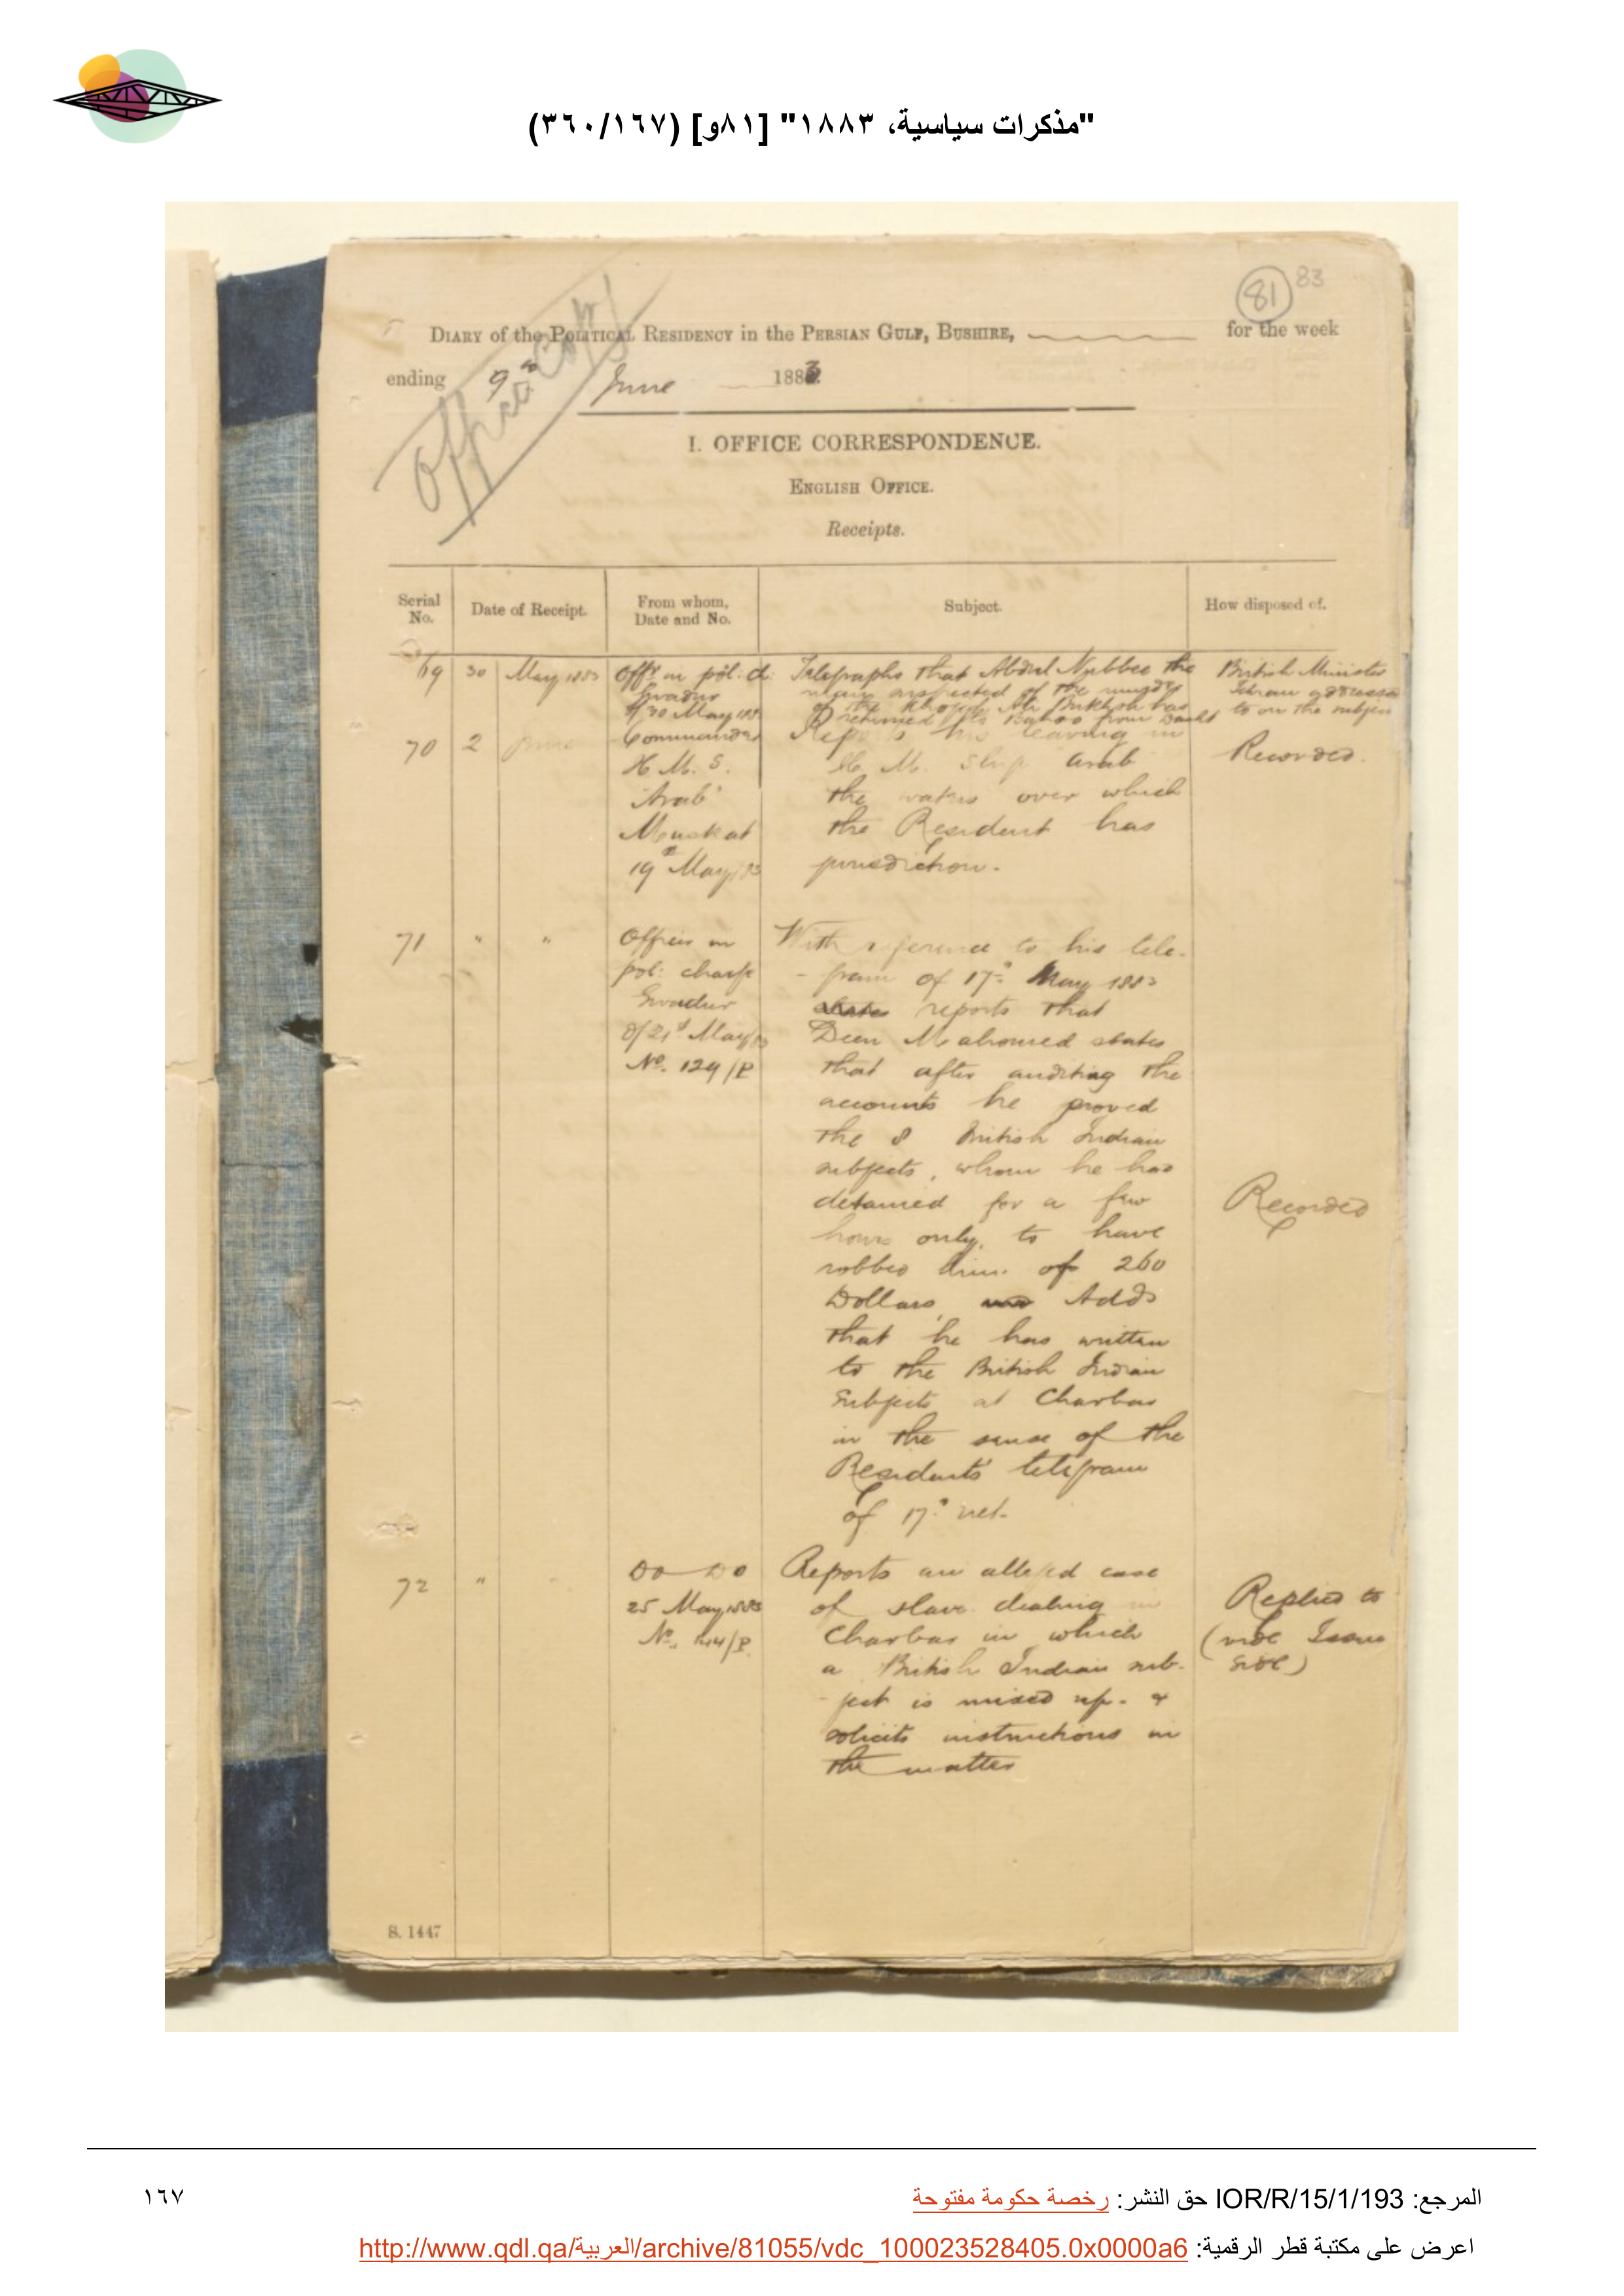 "مذكرات سياسية، ١٨٨٣" [٨١و] (٣٦٠/١٦٧)
81 83
Office Copy
DIARY of the POLITICAL RESIDENCY in the PERSIAN GULF, BUSHIRE, for the week
ending 9th June 1883
I. OFFICE CORRESPONDENCE.
ENGLISH OFFICE.
Receipts.
Serial No.
Date of Receipt.
From whom, Date and No.
Subject.
How disposed of.
69 30 May 1883
Offr in pol. ch.
Gwadur
d/30 May 188
Telegraphs that Abdul Nubbee the
man suspected of the murder
of the Khojah Ali Bukhsh has
returned to Bahoo from
British Minister
Tehran addressed
to on the subject
70 2 June
Commander
H. M. S.
'Arab'
Muskat
19th May/83
Reports his leaving in
H. M. Ship Arab
the waters over which
the Resident has
jurisdiction.
Recorded.
71 " "
Officer in
pol: charge
Gwadur
d/21st May/83
No. 129/P
With reference to his tele-
-gram of 17th May 1883
reports that
Deen Mahomed states
that after auditing the
accounts he proved
the 8 British Indian
subjects, whom he had
detained for a few
hours only, to have
robbed him of 260
Dollars, Adds
that he has written
to the British Indian
Subjects at Charbar
in the sense of the
Residents' telegram
of 17th
Recorded
72 "
Do Do
25 May 1883
No. 144/P.
Reports an alleged case
of slave dealing in
Charbar in which
a British Indian sub-
-ject is mixed up. &
solicits instructions in
the matter
Replied to
(vide Issue
side)
S. 1447
المرجع: IOR/R/15/1/193 حق النشر: رخصة حكومة مفتوحة
١٦٧
اعرض على مكتبة قطر الرقمية: http://www.qdl.qa/العربية/archive/81055/vdc_100023528405.0x0000a6